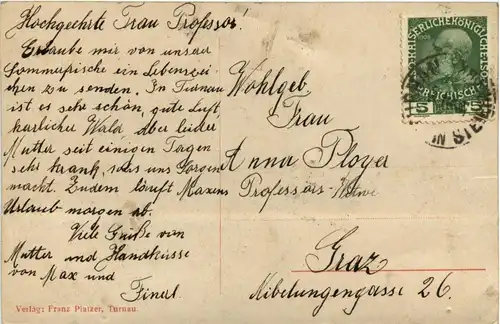 Hochgeehrte Frau Professor!
Erlaube mir von unserer
Sommerfrische ein Lebenszei-
chen zu senden. In Turnau
ist es sehr schön, gute Luft,
herrlicher Wald, aber leider
Mutter seit einigen Tagen
sehr krank, was uns Sorgen
macht. Zudem läuft Maxens
Urlaub morgen ab.
Viele Grüße von
Mutter und Handküsse
von Max und
Finerl.
Wohlgeb.
Frau
Anna Ployer
Professors-Witwe
Graz
Nibelungengasse 26.
KAISERLICHE KÖNIGLICHE
ÖSTERREICHISCHE
5 5
IN STEI
Verlag: Franz Platzer, Turnau.